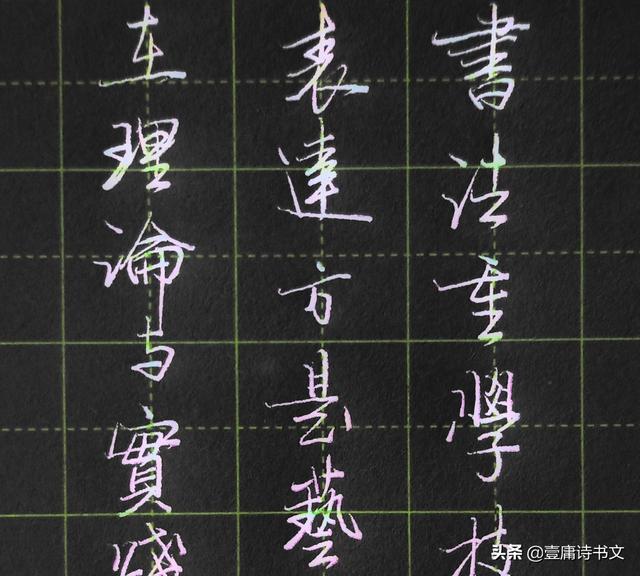 書法重學技
表達方是藝
在理論与實踐
头条 @壹庸诗书文